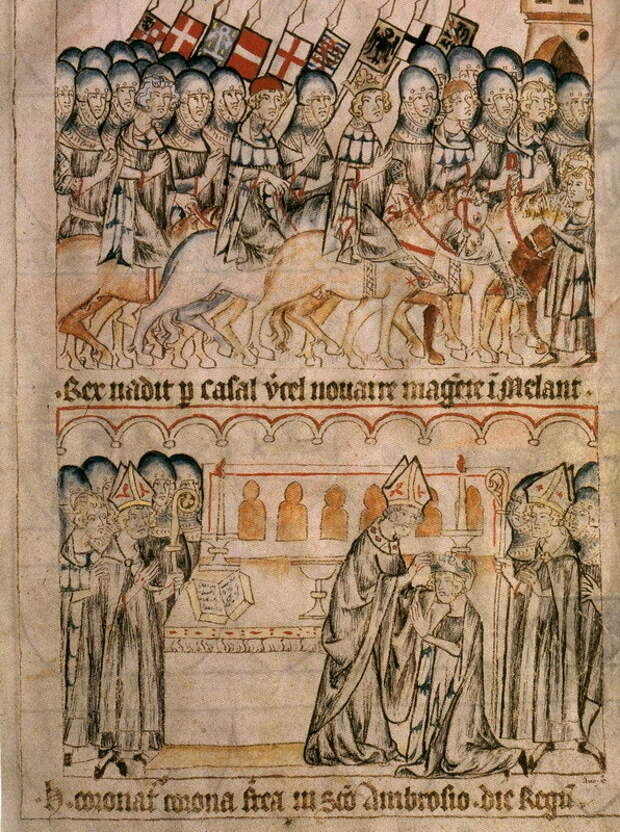 Rex uadit p casal v̄cel nouarie mag̅ete ī Melant.
H. coronat᷒ corona f̄rea in sc̄o Ambrosio die Regū.